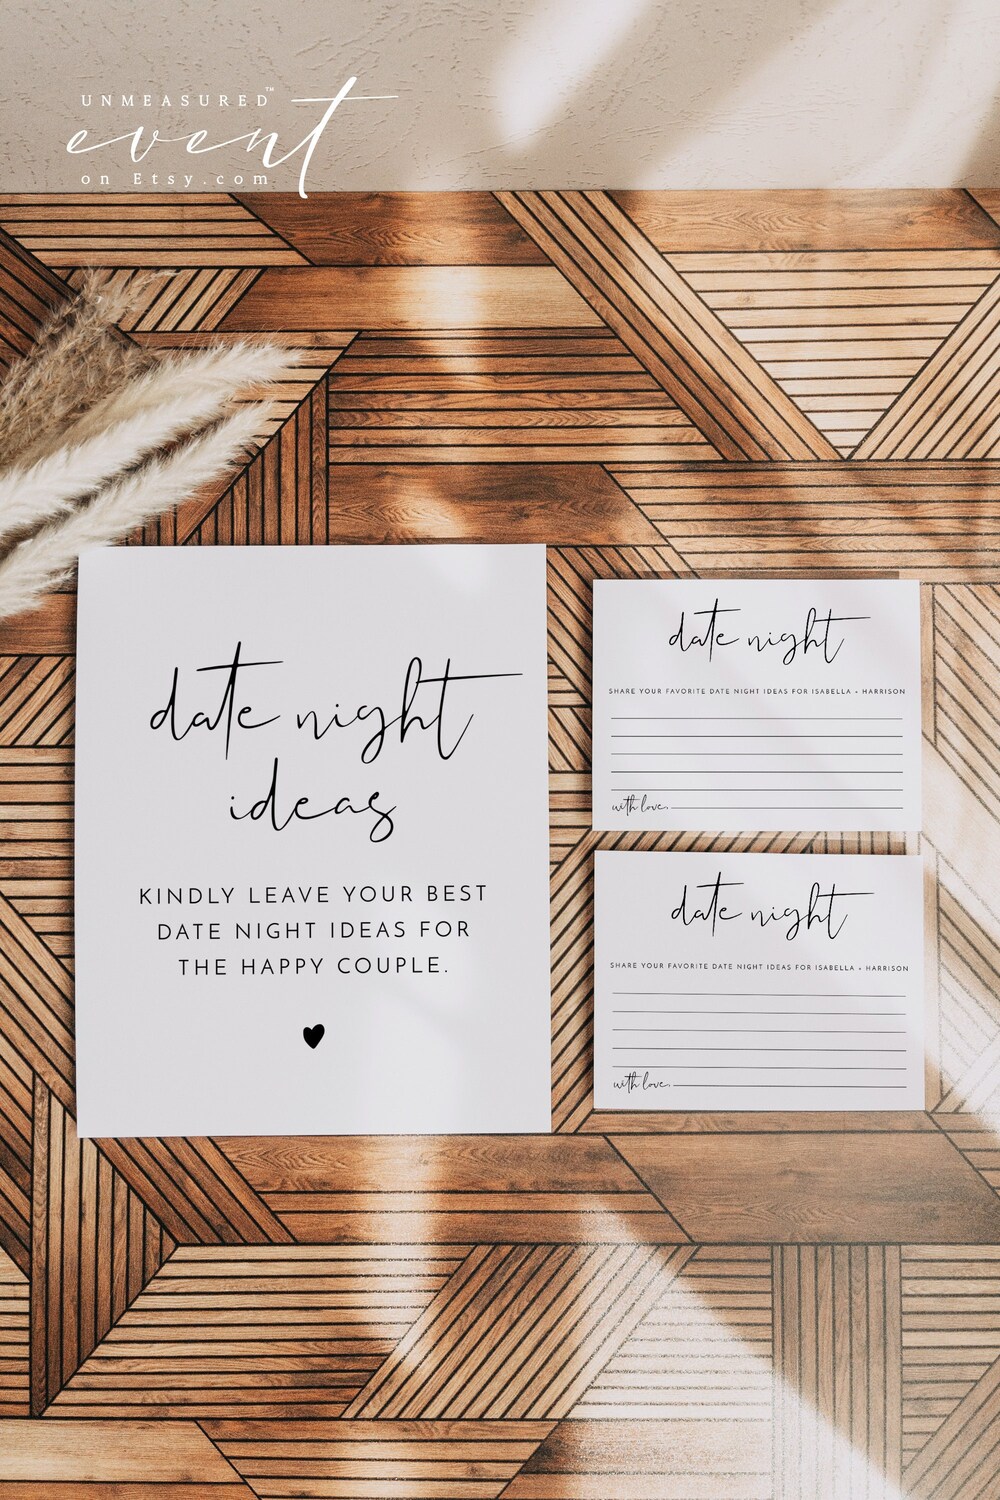 UNMEASURED™
event
on Etsy.com
date night
ideas
KINDLY LEAVE YOUR BEST
DATE NIGHT IDEAS FOR
THE HAPPY COUPLE.
date night
SHARE YOUR FAVORITE DATE NIGHT IDEAS FOR ISABELLA + HARRISON
with love,
date night
SHARE YOUR FAVORITE DATE NIGHT IDEAS FOR ISABELLA + HARRISON
with love,